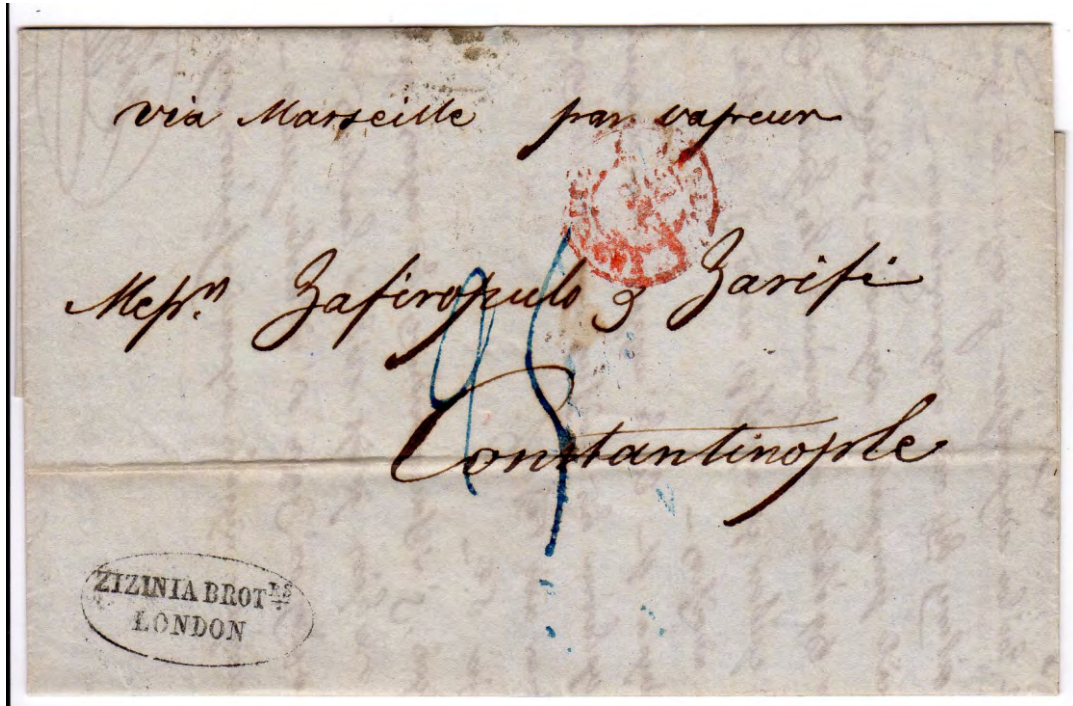 via Marseille par vapeur
Messrs. Zafiropulo & Zarifi
25
Constantinople
ZIZINIA BROTRS
LONDON